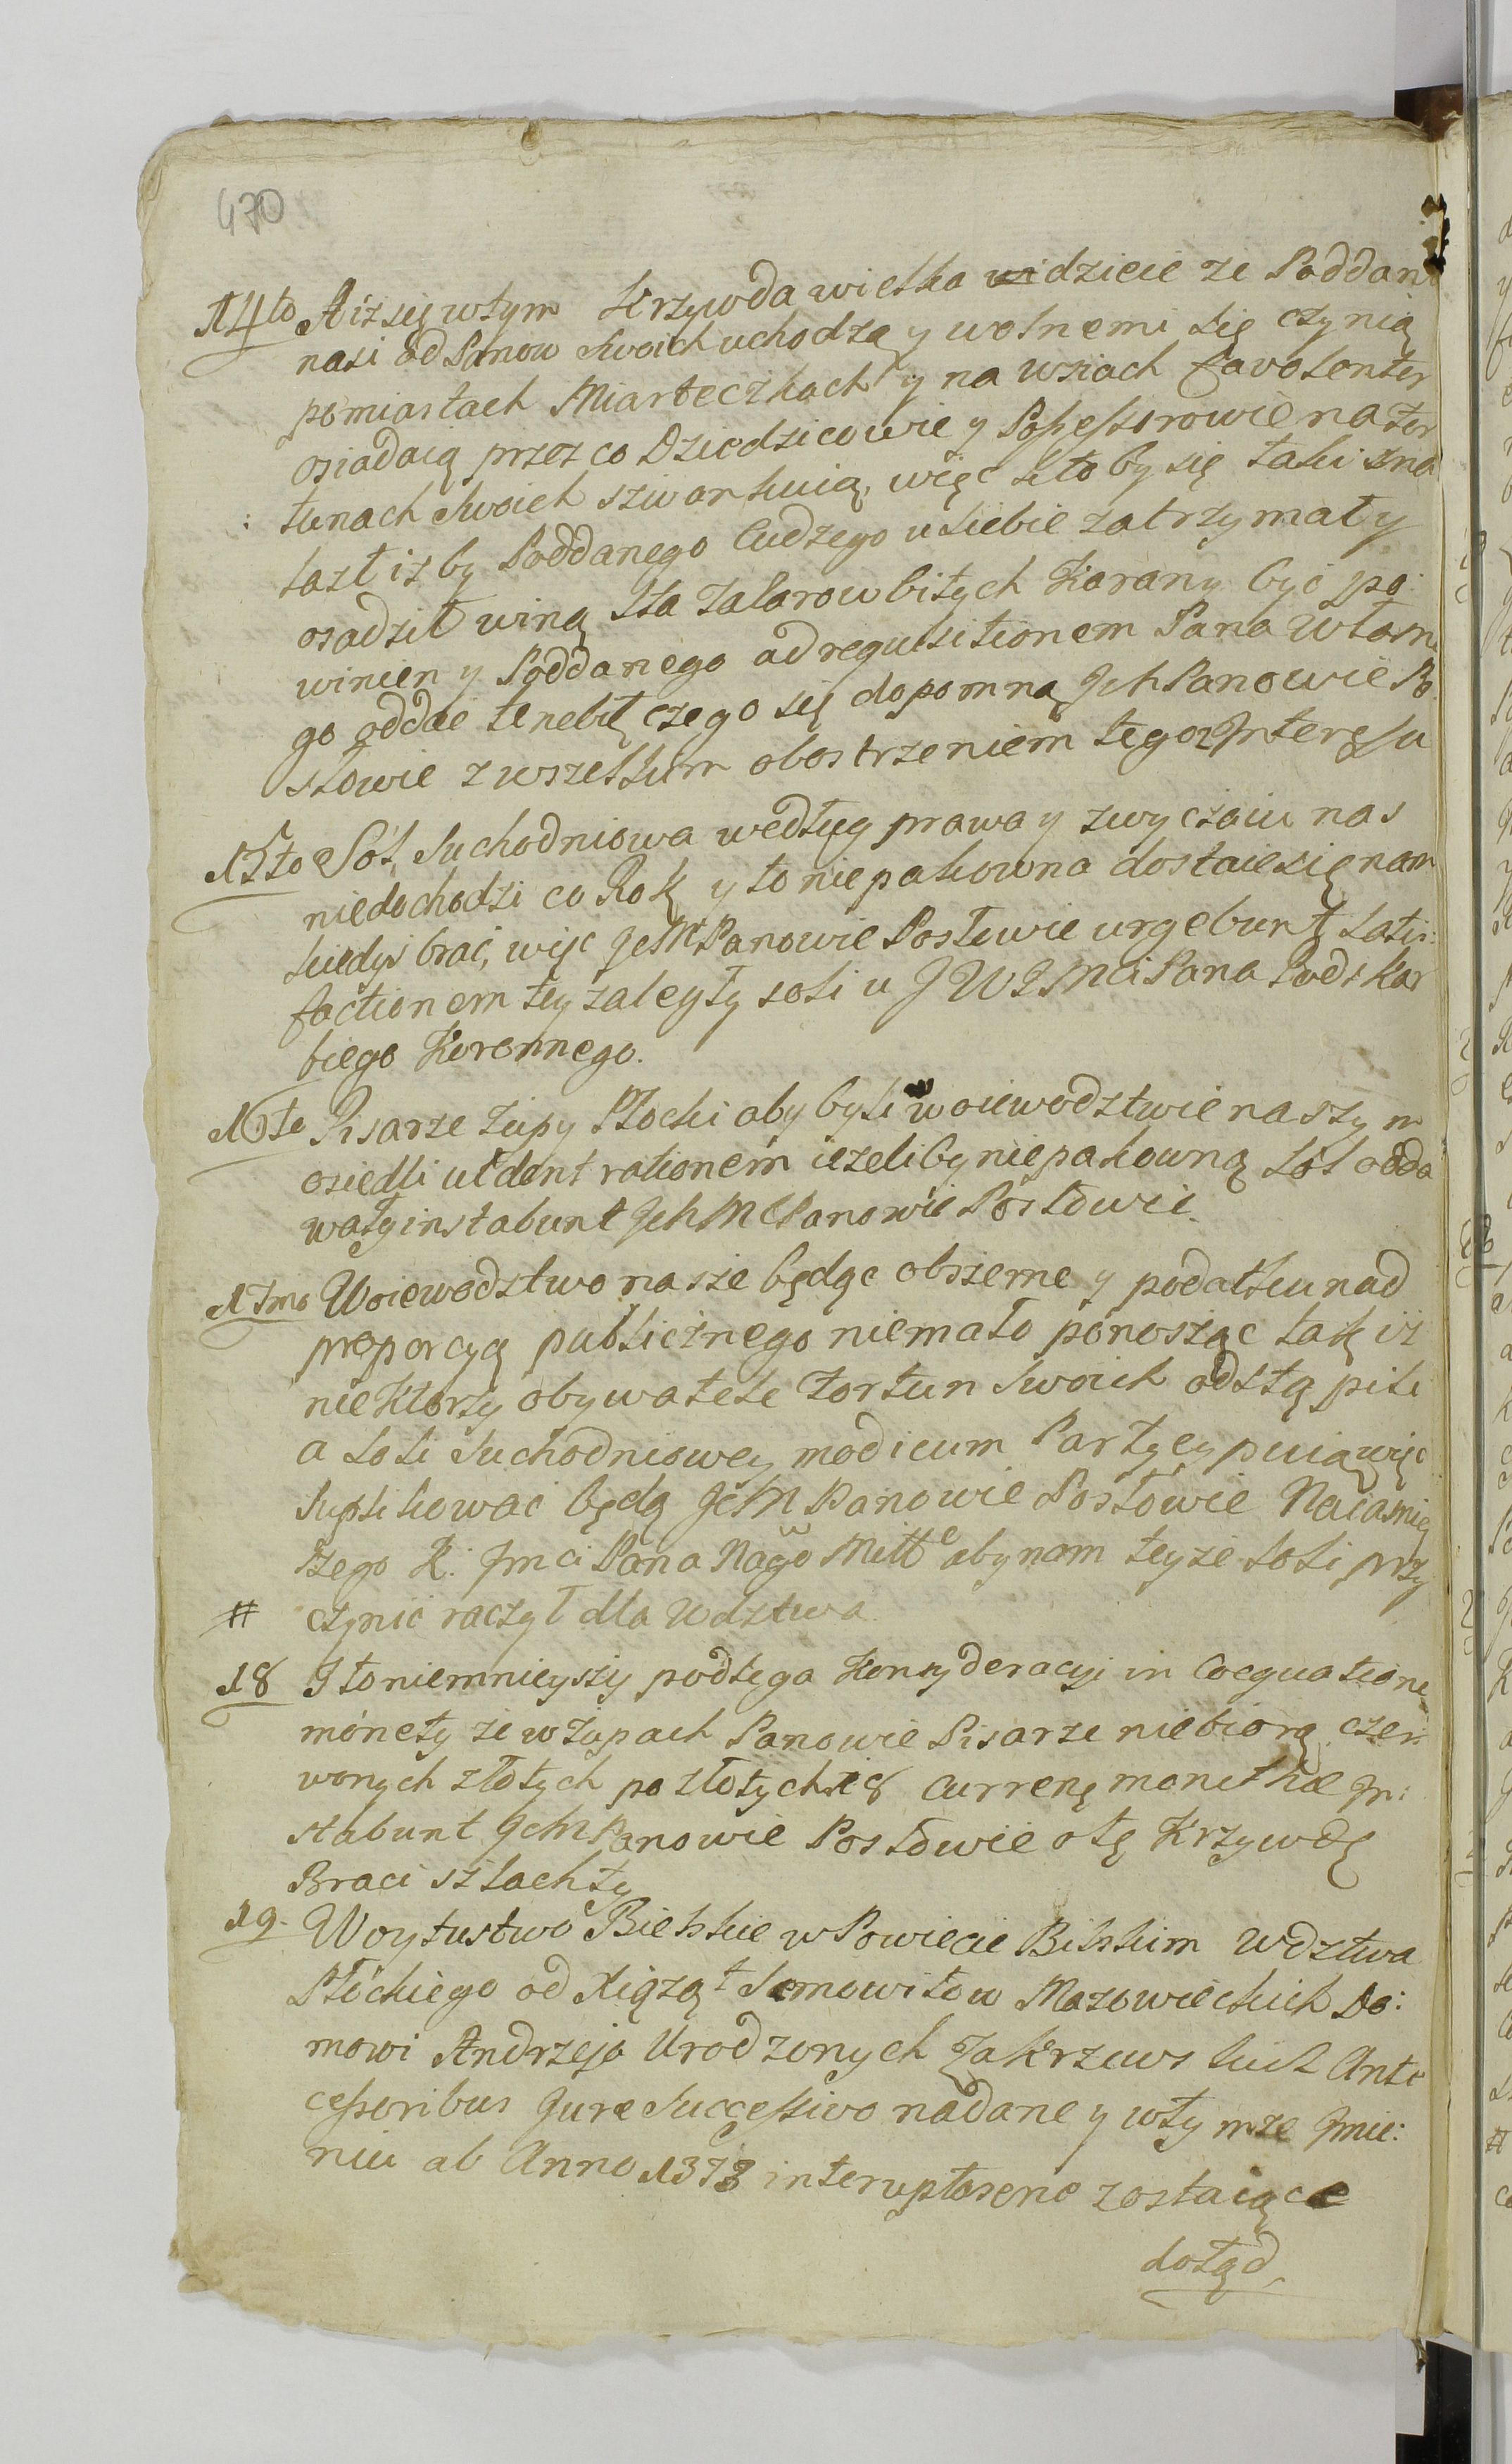 470
14to A iż się w tym Krzywda wielka widziecie ze Poddani
nasi od Panow Swoich uchodzą y wolnemi się czynią
po miastach Miasteczkach y na wsiach Favolenter
osiadaią przez co Dziedzicowie y Possessorowie na For
tunach Swoich szwankuią, więc kto by się taki zna
lazł iz by Poddanego Cudzego u Siebie zatrzymał y
osadził winą Sta Talarow bitych Karany być po
winien y Poddanego ad requisitionem Pana własne
go oddac tenebit, czego się dopomną IchPanowie Po
słowie z wszelkim obostrzeniem tego Interessu
15to Sól Suchodniowa według prawa y zwyczaiu nas
niedochodzi co Rok y to niepakowna dostaie się nam
kiedys brać, więc IchM Panowie Posłowie urgebunt Satis:
factionem tey zaległy soli u JWJMci Pana Podskar
biego Koronnego.
16to Pisarze Zupy Płocki aby byli w woiewodztwie naszym
osiedli ut dent rationem iezeliby niepakowną Sól odda
wały instabunt IchMcPanowie Posłowie.
17mo Woiewodztwo nasze będąc obszerne y podatku nad
proporcyą publicznego niemało ponosząc tak iż
niektorzy obywatele Fortun Swoich odstąpili
a Soli Suchodniowey modicum Partycypuią więc
Suplikować będą IchM Panowie Posłowie Naiasniey
szego K. Jmci Pana Nago Mitte aby nam teyze Soli przy
# czynić raczył dla Wdztwa
18 I to niemnieyszy podlega Konsyderacyi in Coequatione
monety ze w Zupach Panowie Pisarze niebiorą czer
wonych złotych po złotych 18 Currenę monethae In:
stabunt IchM Panowie Posłowie o tę Krzywdę
Braci szlachty
19. Woytustwo Bielskie w Powiecie Bilskim Wdztwa
Płockiego od Xiążąt Semowitow Mazowieckich Do:
mowi Andrzeja Urodzonych Zakrzewskich Ante
cessoribus Jure Successivo nadane y w tymze Jmie:
niu ab Anno 1373 interuptosene zostaiące
dotąd